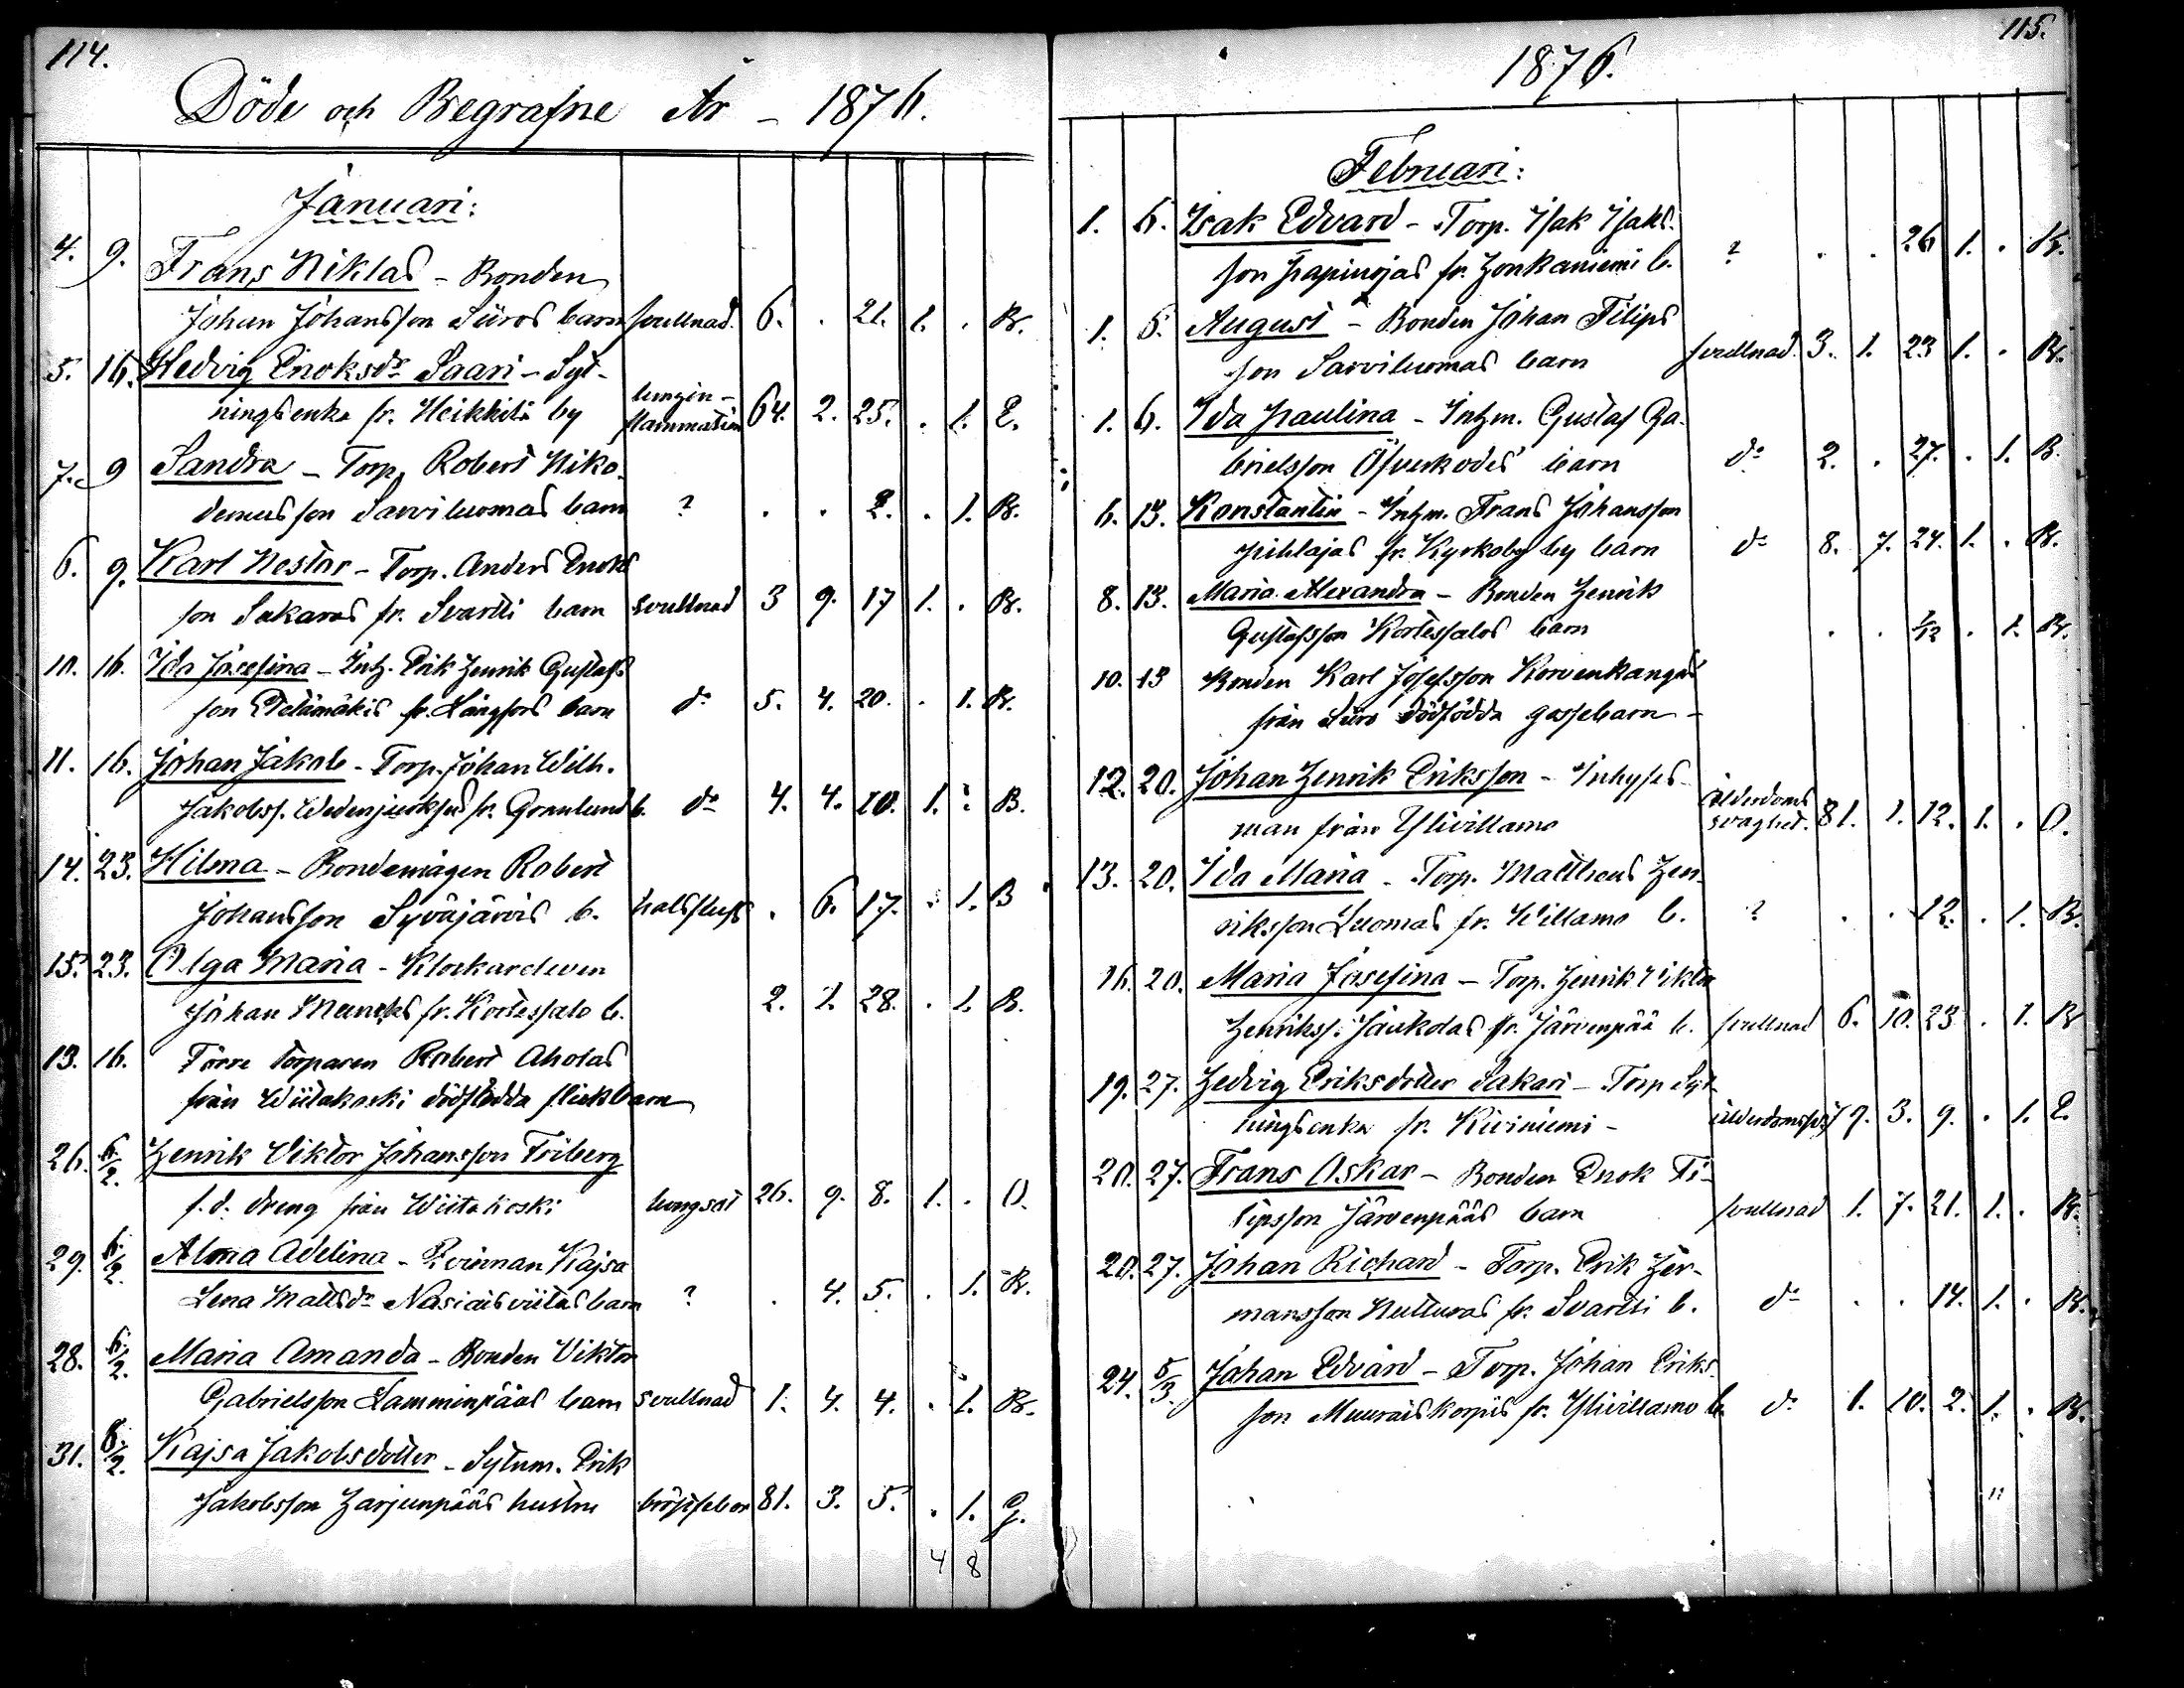 114.
Döde och Begrafne År - 1876.
Januari:
4. 9. Frans Niklas - Bonden
Johan Johansson Siiros barn svullnad. 6. . 21. 1. . B.
5. 16. Hedvig Enoksdr Saari - Syt-
ningsenka fr. Heikkilä by lungin-
flammation 64. 2. 25. . 1. E.
7. 9 Sandra - Torp. Robert Niko-
demusson Sarviluomas barn ? . . 2. . 1. B.
6. 9. Karl Nestor - Torp. Anders Enoks
son Sakaras fr. Svartti barn svullnad 3 9. 17 1. . B.
10. 16. Ida Josefina - Inh. Erik Henrik Gustafs
son Etelämäkis fr. Långfors barn do 5. 4. 20. . 1. B.
11. 16. Johan Jakob - Torp. Johan Wilh.
Jakobss. fr. Granlund b. do 4. 4. 10. 1. B.
14. 23. Hilma - Bondemågen Robert
Johansson Syväjärvis b. halsfluss . 6. 17. . 1. B
15. 23. Olga Maria - Klockareleven
Johan fr. Kortessalo b. 2. 28. . 1. B.
13. 16. Förre torparen Robert Aholas
från Wiitakoski dödfödda flickbarn
26. 6/2. Henrik Viktor Johansson Friberg
f.d. dreng från Wiitakoski lungsot 26. 9. 8. 1. . O.
29. 6/2. Alma Adelina - Qvinnan Kajsa
Lena Mattsdr barn ? . 4. 5. . 1. B.
28. 6/2. Maria Amanda - Bonden Viktor
Gabrielsson Lamminpääs barn svullnad 1. 4. 4. . 1. B.
31. 6/2. Kajsa Jakobsdotter - Sytnm. Erik
Jakobsson Harjunpääs hustru 81. 3. 5. . 1. G.
4 8
115.
1876.
Februari:
1. 6. Isak Edvard - Torp. Isak Isaks-
son fr. Honkaniemi b. ? . . 26 1. . B.
1. 6. August - Bonden Johan Filips
son Sarviluomas barn svullnad. 3. 1. 23 1. . B.
1. 6. Ida Paulina - Inhm. Gustaf Ga-
brielsson barn do 2. . 27. . 1. B.
6. 13. Konstantin - Inhm. Frans Johansson
Pihlajas fr. Kyrkoby by barn do 8. 7. 24. 1. . B.
8. 13. Maria Alexandra - Bonden Henrik
Gustafsson Kortessalos barn . . 1/12 . 1. B.
10. 13 Bonden Karl Josefsson Korvenkangas
från Siiro dödfödda gossebarn -
12. 20. Johan Henrik Eriksson - Inhyses-
man från Ylivillamo ålderdoms
svaghet. 81. 1. 12. 1. . O.
13. 20. Ida Maria - Torp. Mattheus Hen-
riksson Luomas fr. Willamo b. ? . . 12. . 1. B.
16. 20. Maria Josefina - Torp. Henrik Viktor
Henrikss. fr. Järvenpää b. svullnad 6. 10. 23 . 1. B
19. 27. Hedvig Eriksdotter Sakari - Torp. Syt-
ningsenka fr. Kiviniemi - 79. 3. 9. . 1. E.
20. 27. Frans Oskar - Bonden Enok Fi-
lipsson Järvenpääs barn svullnad 1. 7. 21. 1. . B.
20. 27. Johan Richard - Torp. Erik Her-
mansson fr. Svartti b. do . . 14. 1. . B.
24. 5/3. Johan Edvard - Torp. Johan Eriks-
son Muuraiskorpis fr. Ylivillamo b. do 1. 10. 2. 1. . B.